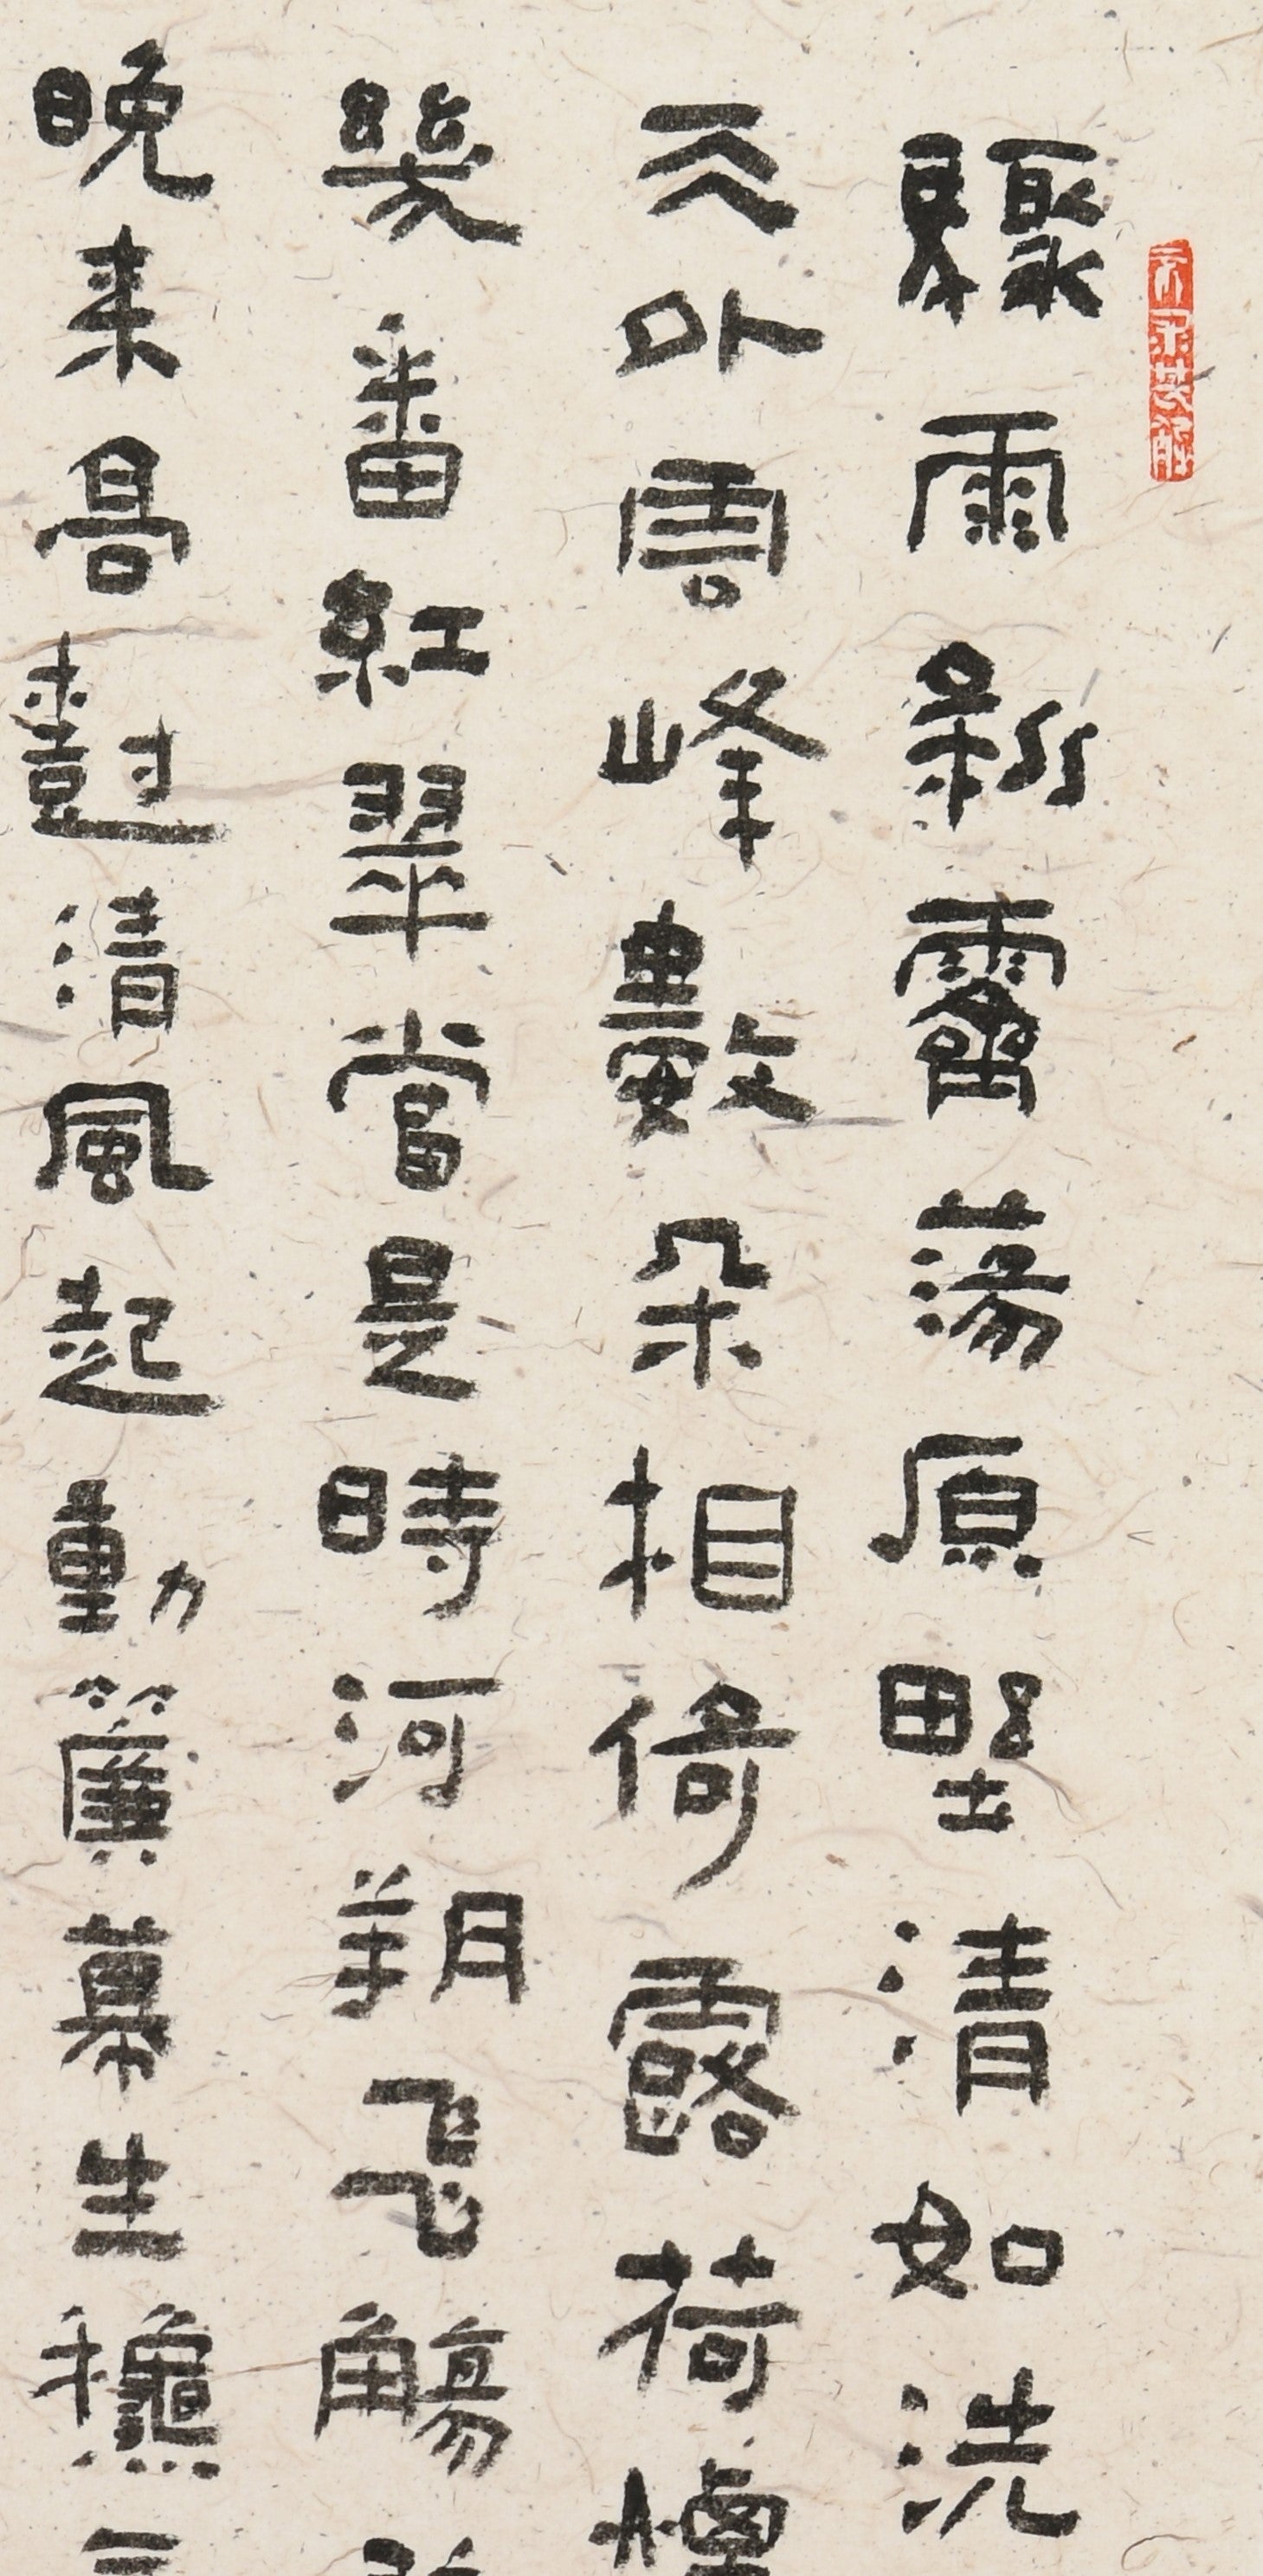 驟雨新霽蕩原野清如洗
天外雲峰數朵相倚露荷煙
幾番紅翠當是時河朔飛觴
晚來高樹清風起動簾幕生秋